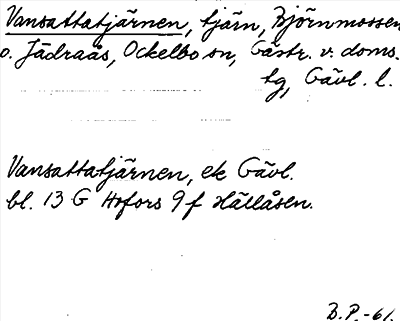 Vansattatjärnen, tjärn, Björnmossen
o. Jädraås, Ockelbo sn, Gästr. v. doms.
tg, Gävl. l.
Vansattatjärnen, ek Gävl.
bl. 13 G Hofors 9 f Hällåsen.
B.P.-61.